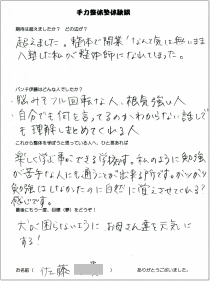 手力整体塾体験談
期待は超えましたか？ どの辺が？
超えました。整体で開業!なんて気は無いまま
入塾した私が整体師になれてしまった。
パンチ伊藤はどんな人でしたか？
・脳みそフル回転な人、根気強い人
・自分でも何を言ってるのかわからない話しでも
も理解しまとめてくれる人
これから整体を学ぼうと思っている人へ、ひと言あれば
楽しく学ぶ事ができる学校です。私のように勉強
が苦手な人にも通うことが出来る所です。ガッツリ
勉強はしなかったのに自然に覚えさせてくれる?
感じです。
最後にもう一度、目標（夢）をどうぞ！
犬が困らないように お母さん達を元気に
する!
お名前（
佐藤
）
ありがとうございました。